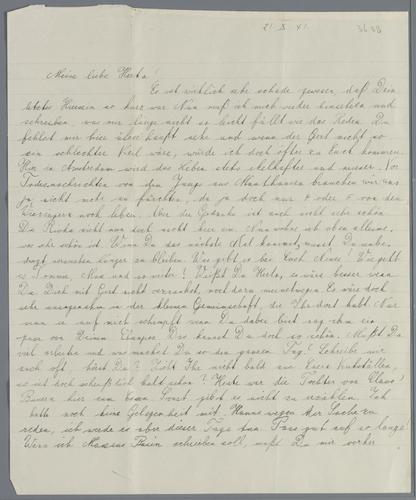 21. X. 41.
3638
Meine liebe Herta!
Es ist wirklich sehr schade gewesen, daß Dein
letztes Hiersein so kurz war. Nun muß ich mich wieder hinsetzen und
schreiben, was mir lange nicht so leicht fällt wie das Reden. Du
fehlst mir hier überhaupt sehr und wenn der Gert nicht so
ein schlechter Kerl wäre, würde ich doch öfter zu Euch kommen.
Hier in Amsterdam wird das Leben stets ekelhafter und mieser. Vor
Todesnachrichten von den Jungs aus Mauthausen brauchen wir uns
ja nicht mehr zu fürchten, da ja doch nur 4 oder 5 von den
noch leben. Aber der Gedanke ist auch nicht sehr schön.
Da nun auch nicht hier ist. Nun wohne ich oben alleine,
was sehr schön ist. Wenn Du das nächste Mal kommst, musst Du unbe-
dingt versuchen länger zu bleiben. Wie geht es bei Euch Allen? Wie geht
es und so weiter? Weißt Du Herta, es wäre besser wenn
Du Dich mit Gert nicht verkrachst, noch dazu meinetwegen. Es wäre doch
sehr unangenehm in der kleinen Gemeinschaft, die Ihr dort habt. Nur
wenn er auf mich schimpft wenn Du dabei bist sag ihm ein
paar von Deinen Das kannst Du doch so schön. Mußt Du
viel arbeiten und was machst Du so den ganzen Tag? Schreibe mir
auch oft, hörst Du? Hört Ihr nicht bald aus
es ist doch scheußlich kalt schon? Heute war die Tochter von Claus
hier zum Sonst gibt es nicht zu erzählen. Ich
hatte noch keine Gelegenheit mit Hannes wegen der Sache zu
reden, ich werde es aber dieser Tage tun. Pass gut auf so lange!
Wenn ich schreiben soll, mußt Du mir vorher